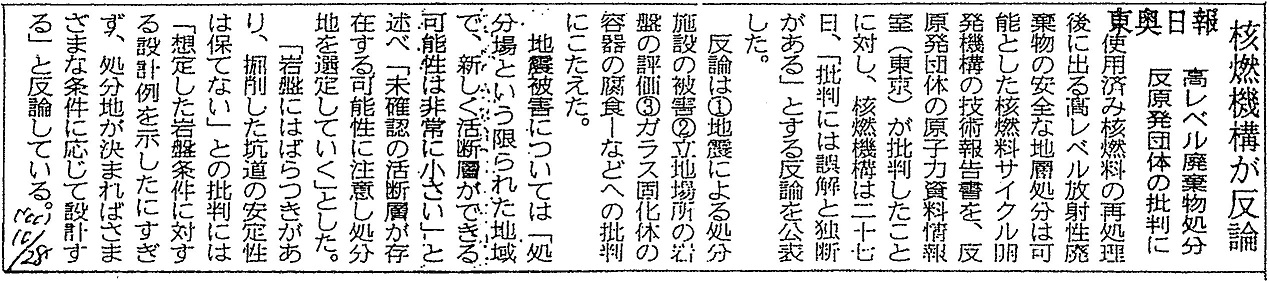 核燃機構が反論
高レベル廃棄物処分
反原発団体の批判に
東奥日報
使用済み核燃料の再処理
後に出る高レベル放射性廃
棄物の安全な地層処分は可
能とした核燃料サイクル開
発機構の技術報告書を、反
原発団体の原子力資料情報
室（東京）が批判したこと
に対し、核燃機構は二十七
日、「批判には誤解と独断
がある」とする反論を公表
した。
反論は①地震による処分
施設の被害②立地場所の岩
盤の評価③ガラス固化体の
容器の腐食ーなどへの批判
にこたえた。
地震被害については「処
分場という限られた地域
で、新しく活断層ができる
可能性は非常に小さい」と
述べ「未確認の活断層が存
在する可能性に注意し処分
地を選定していく」とした。
「岩盤にはばらつきがあ
り、掘削した坑道の安定性
は保てない」との批判には
「想定した岩盤条件に対す
る設計例を示したにすぎ
ず、処分地が決まればさま
ざまな条件に応じて設計す
る」と反論している。
10/28